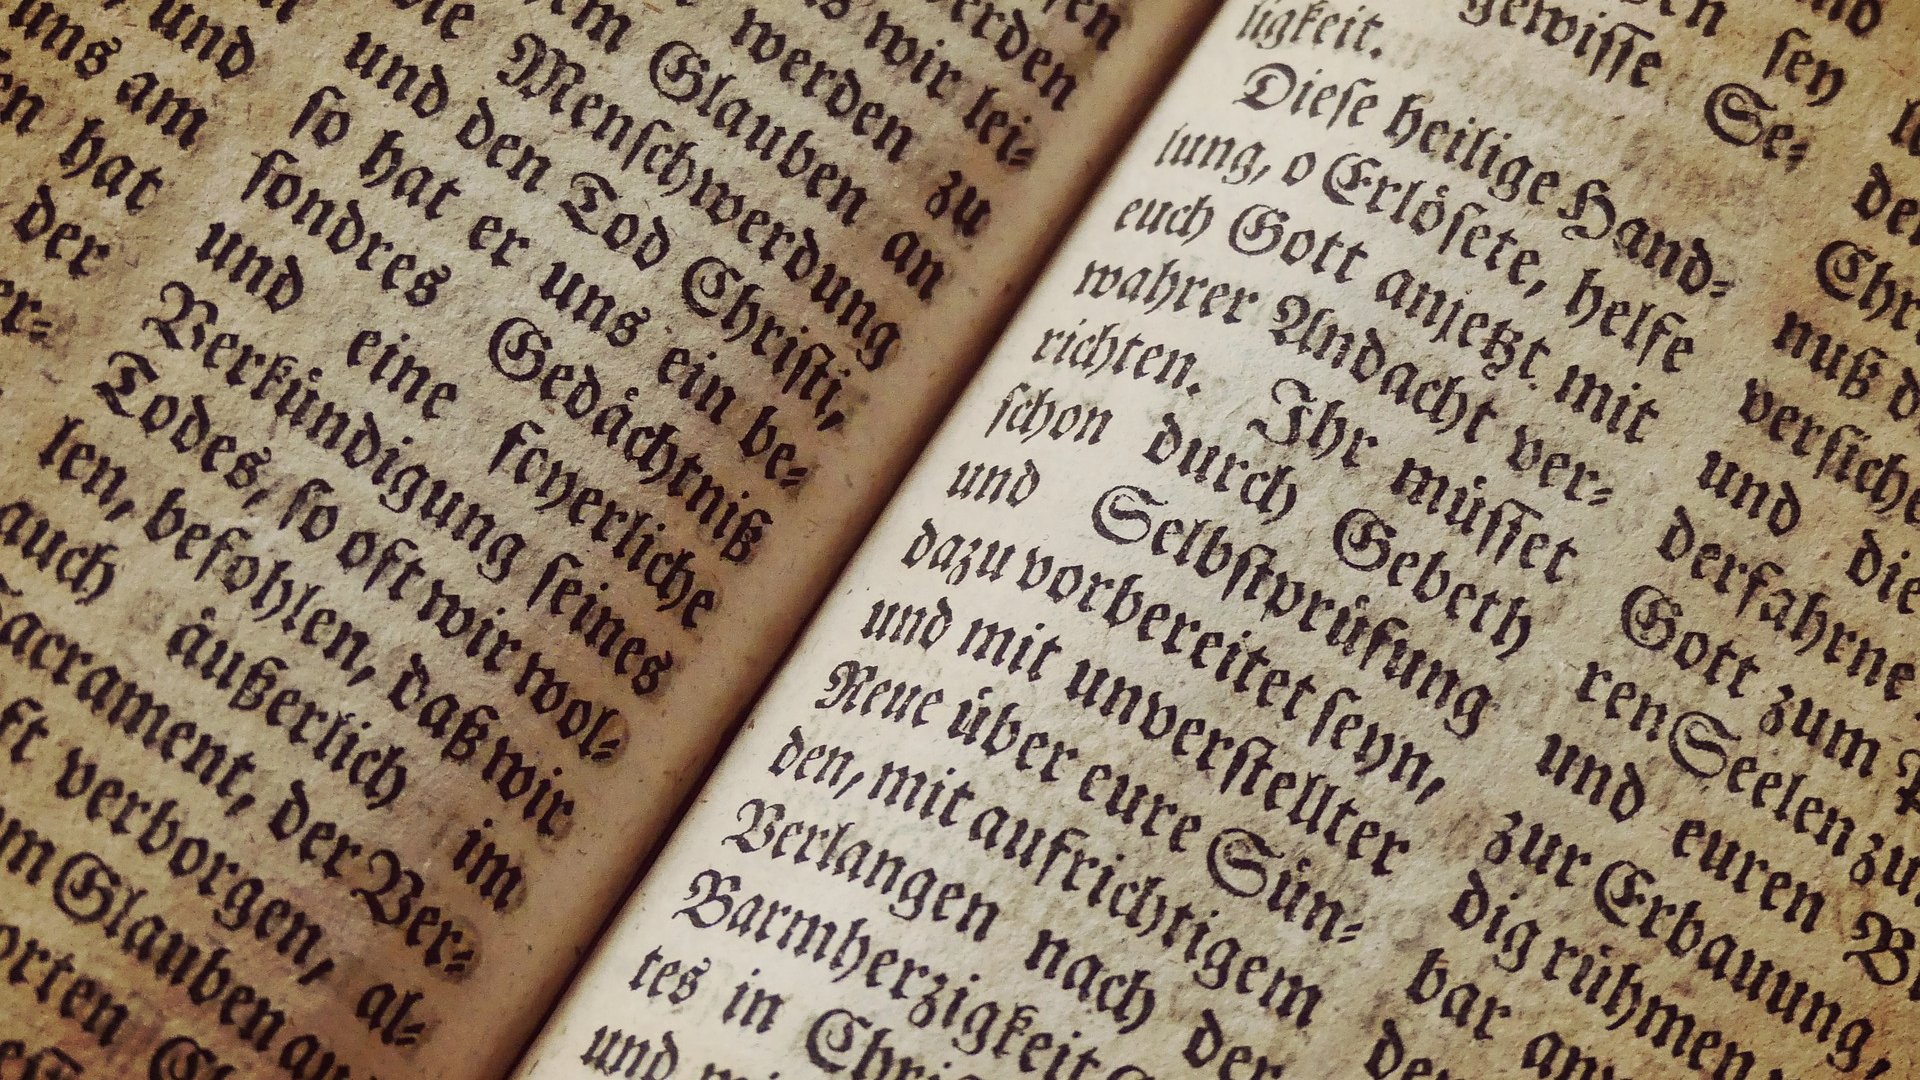 und
uns am
hat
der
er=
erden
wir lei=
werden zu
Glauben an
Menschwerdung
und den Tod Christi,
so hat er uns ein be=
sondres Gedächtniß
und eine feyerliche
Verkündigung seines
Todes, so oft wir wol=
len, befohlen, daß wir
auch äußerlich im
Sacrament, der Ver=
verborgen, al=
Glauben
orten
gewisse Se=
ligkeit.
Diese heilige Hand=
lung, o Erlösete, helfe
euch Gott anjetzt mit
wahrer Andacht ver=
richten. Ihr müsset
schon durch Gebeth
und Selbstprüfung
dazu vorbereitet seyn,
und mit unverstellter
Reue über eure Sün=
den, mit aufrichtigem
Verlangen nach der
Barmherzigkeit
tes in Chri
und
sey
Chri
nuß
versiche
und die
derfahrne
Gott zum
ren Seelen zu
und euren
zur Erbauung,
dig rühmen,
bar